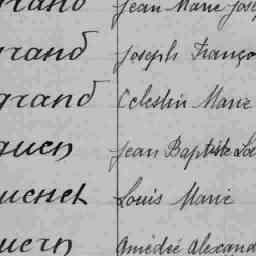 rand Jean Marie Jos
rand Joseph Franço
grand Célestin Marie
quen Jean Baptiste Lo
uenet Louis Marie
uern Amédée Alexand